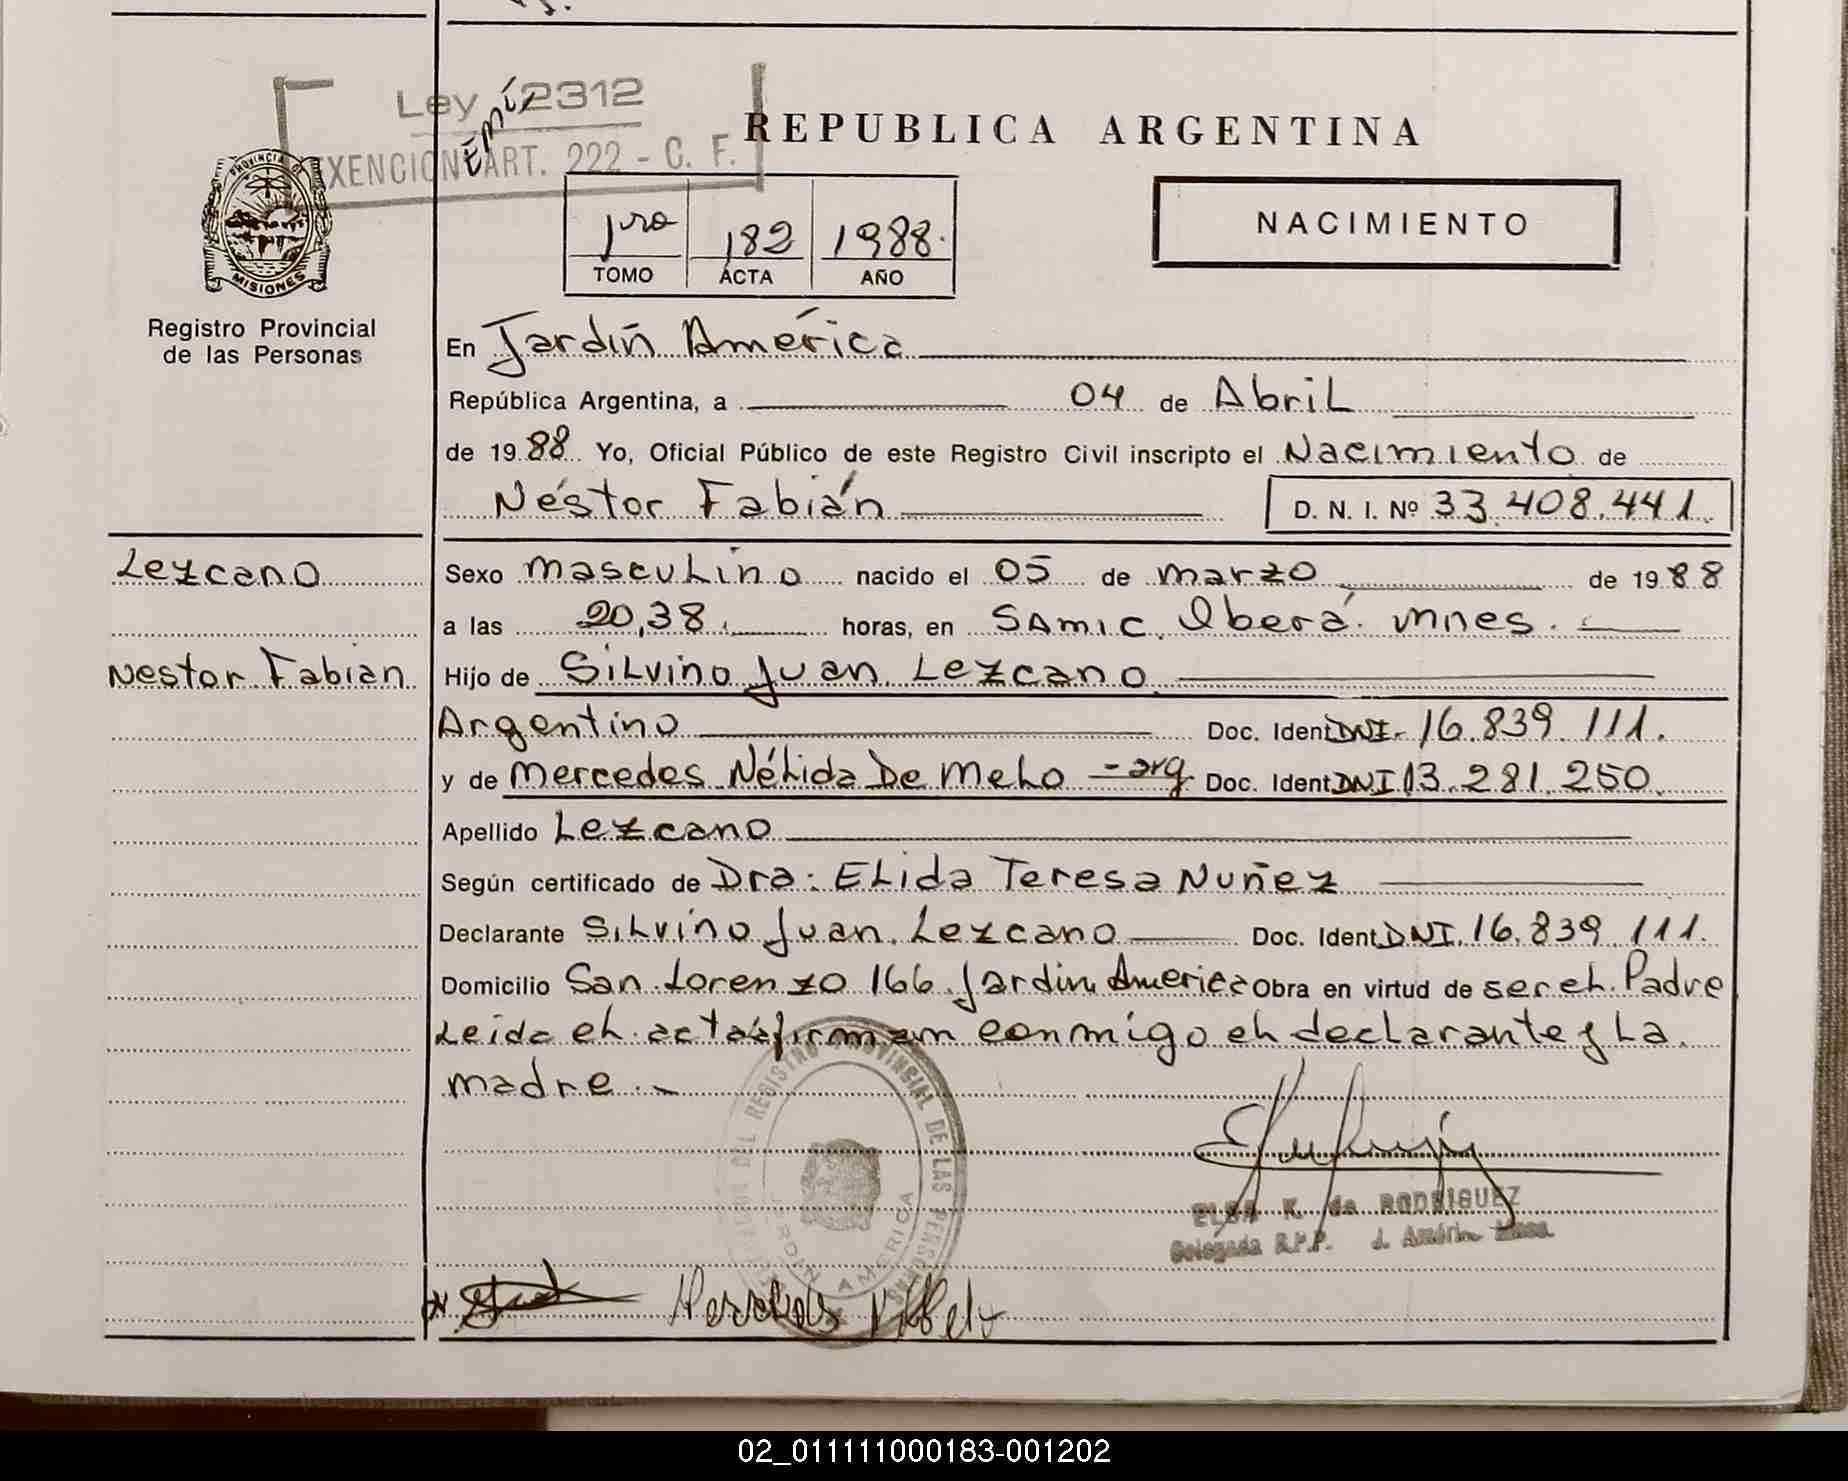 Ley 2312
EXENCION ART. 222 - C. F.
REPUBLICA ARGENTINA
PROVINCIA DE
MISIONES
Registro Provincial
de las Personas
1ro 182 1988.
TOMO ACTA AÑO
NACIMIENTO
En Jardín América
República Argentina, a 04 de Abril
de 1988 Yo, Oficial Público de este Registro Civil inscripto el Nacimiento de
Néstor Fabián D. N. I. Nº 33.408.441.
Lezcano
Nestor Fabian
Sexo masculino nacido el 05 de marzo de 1988
a las 20,38. horas, en SAMIC. Oberá. mnes.
Hijo de Silvino Juan Lezcano
Argentino Doc. Ident DNI- 16.839.111.
y de Mercedes Nélida De Melo - arg Doc. Ident DNI 13.281.250.
Apellido Lezcano
Según certificado de Dra: Elida Teresa Nuñez
Declarante Silvino Juan Lezcano Doc. Ident DNI. 16.839.111.
Domicilio San Lorenzo 166. Jardin America Obra en virtud de ser el Padre
Leida el acta firman conmigo el declarante y La
madre.-
DEL REGISTRO PROVINCIAL DE LAS PERSONAS
JARDIN AMERICA
ELSA K. de RODRIGUEZ
Delegada R.P.P. J. América
02_011111000183-001202